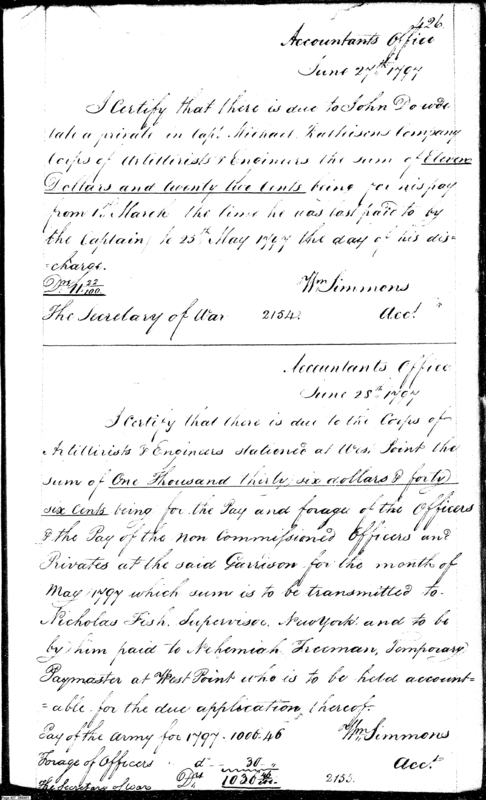 426
Accountants Office
June 27th 1797
I Certify that there is due to John Dowde
late a private in Capt. Michael Kalteisens Company
Corps of Artillirists & Engineers the sum of Eleven
Dollars and twenty two Cents being for his pay
from 1st March the time he was last paid to by
the Captain, to 25th May 1797 the day of his dis=
=charge.
Drs 11. 22/100
Wm Simmons
The Secretary of War 2154. Acct.
Accountants Office
June 28th 1797
I Certify that there is due to the Corps of
Artillirists & Engineers stationed at West Point the
sum of One Thousand thirty six dollars & forty
six Cents being for the Pay and forage of the Officers
& the Pay of the non Commissioned Officers and
Privates at the said Garrison for the month of
May 1797 which sum is to be transmitted to
Nicholas Fish, Supervisor, New York and to be
by him paid to Nehemiah Freeman, Temporary
Paymaster at West Point who is to be held account=
=able for the due application thereof.
Pay of the Army for 1797. 1006.46
Wm Simmons
Forage of Officers do 30 "
Acct.
Drs 1036 46/100
The Secretary of War 2155.